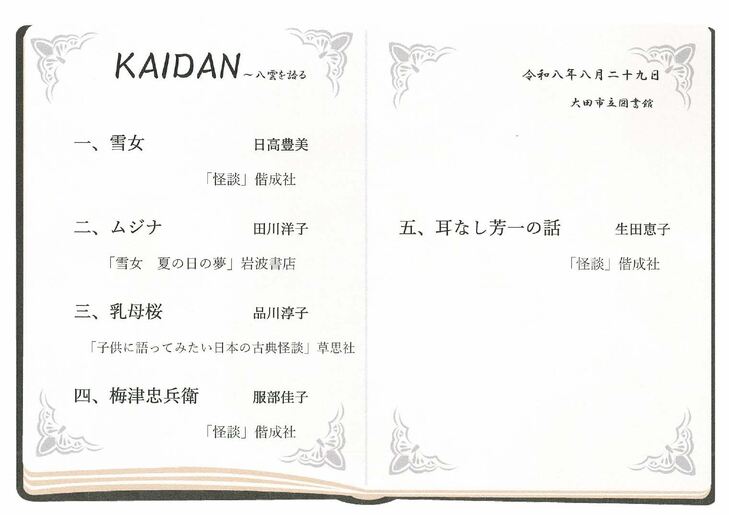 KAIDAN ～八雲を語る
一、雪女　日高豊美
「怪談」偕成社
二、ムジナ　田川洋子
「雪女　夏の日の夢」岩波書店
三、乳母桜　品川淳子
「子供に語ってみたい日本の古典怪談」草思社
四、梅津忠兵衛　服部佳子
「怪談」偕成社
令和八年八月二十九日
大田市立図書館
五、耳なし芳一の話　生田恵子
「怪談」偕成社